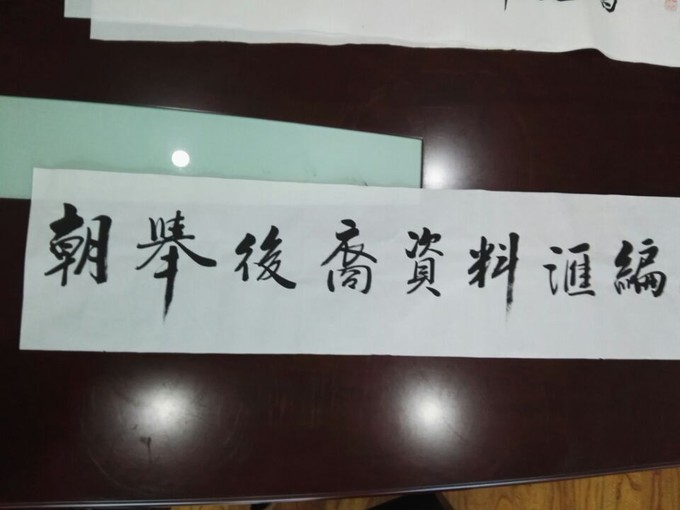 朝舉後裔資料滙編